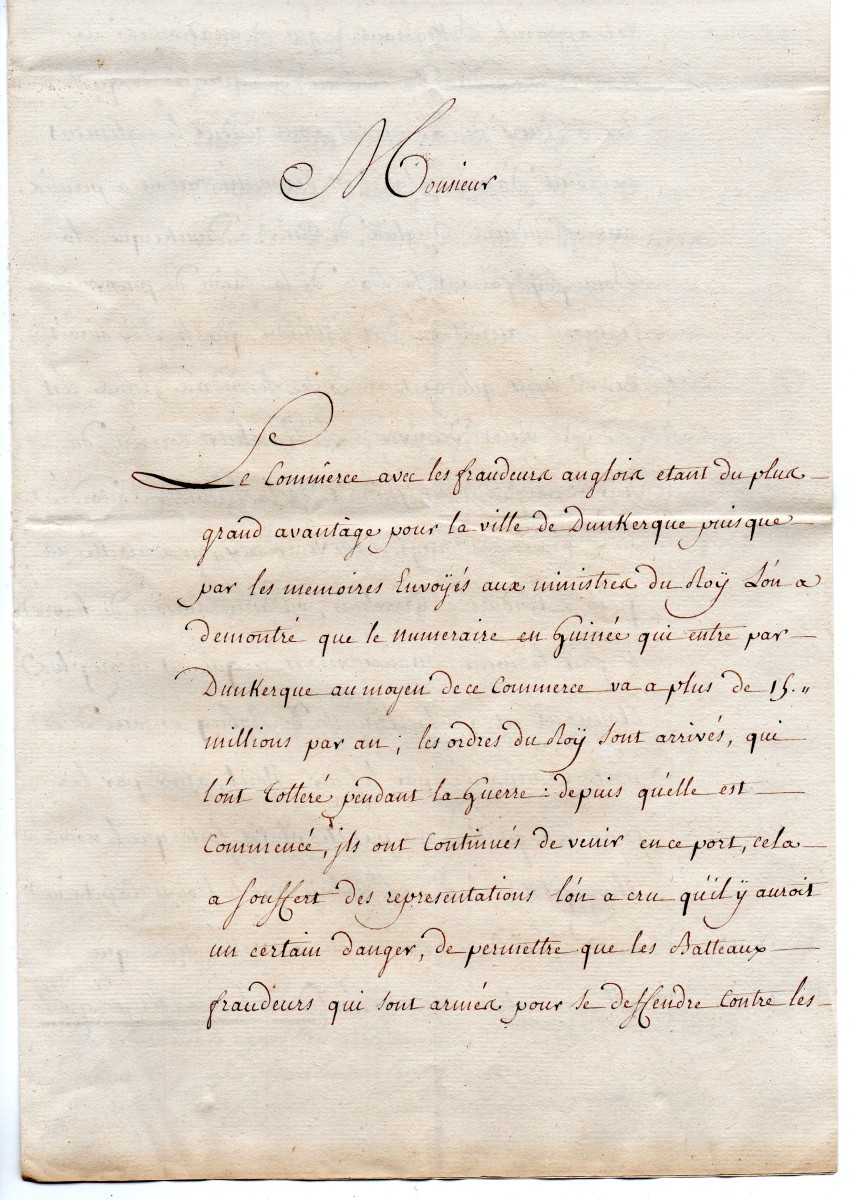 Monsieur
Le Commerce avec les fraudeurs anglois etant du plus
grand avantage pour la ville de Dunkerque puisque
par les memoires Envoyés aux ministres du Roÿ L'on a
demontré que le numeraire en Guinée qui entre par
Dunkerque au moyen de ce Commerce va a plus de 15.
millions par an ; les ordres du Roÿ sont arrivés, qui
l'ont tolleré pendant la Guerre : depuis qu'elle est
Commencé, jls ont Continués de venir en ce port, cela
a souffert des representations l'on a cru qu'il ÿ auroit
un certain danger, de permettre que les Batteaux
fraudeurs qui sont armés pour se deffendre Contre les